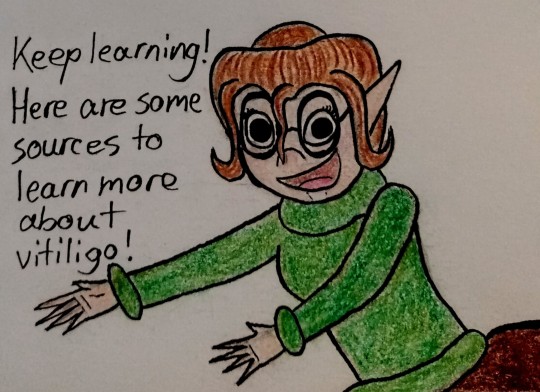 Keep learning!
Here are some
sources to
learn more
about
vitiligo!